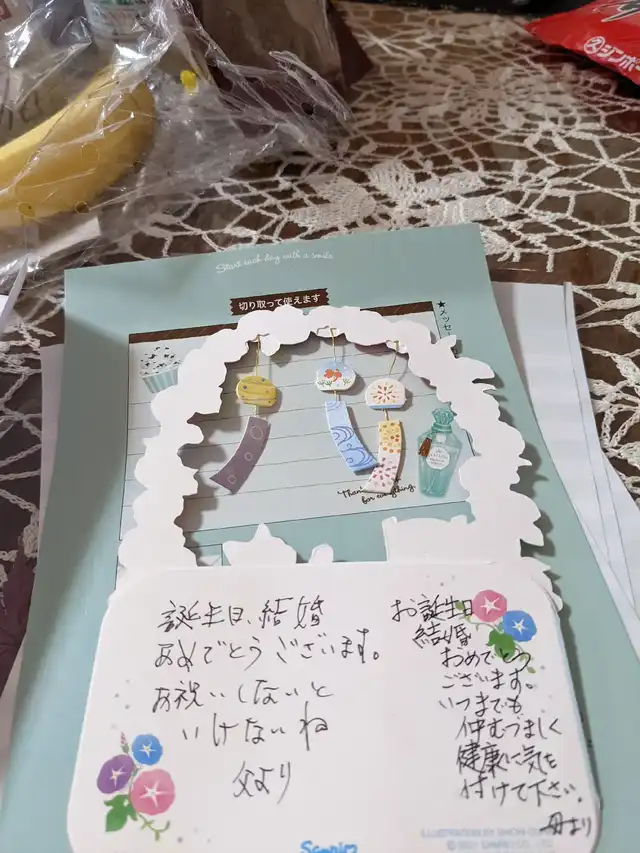 Start each day with a smile
切り取って使えます
★メッセー
Thank
for everything.
誕生日、結婚
おめでとうございます。
お祝いしないと
いけないね
父より
お誕生日
結婚
おめでとう
ございます。
いつまでも
仲むつましく
健康に気を
付けて下さい。
母より
Sanrio
ジンポー